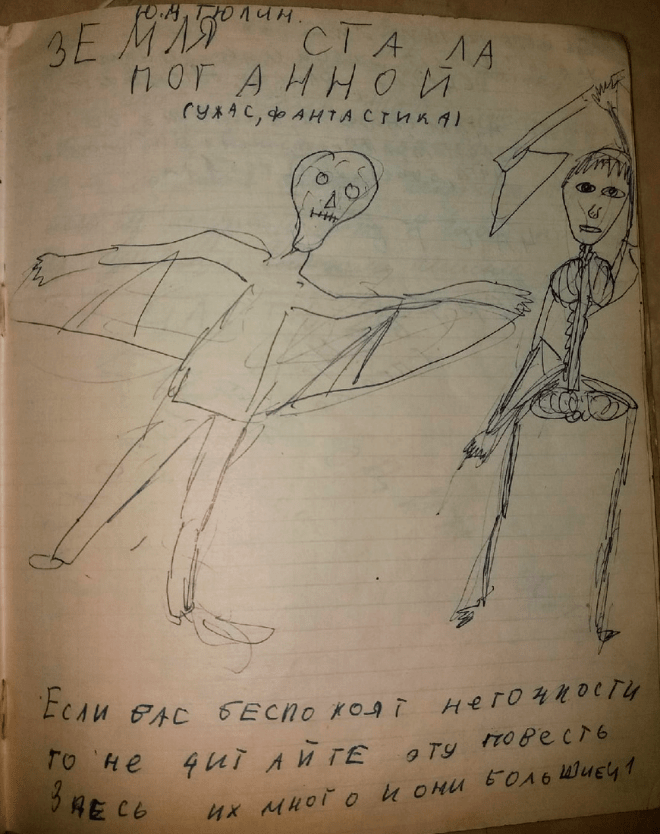 Ю.Н. ТЮЛИН.
ЗЕМЛЯ СТАЛА
ПОГАННОЙ
(УЖАС, ФАНТАСТИКА)
ЕСЛИ ВАС БЕСПОКОЯТ НЕТОЧНОСТИ
ТО НЕ ЧИТАЙТЕ ЭТУ ПОВЕСТЬ
ЗДЕСЬ ИХ МНОГО И ОНИ